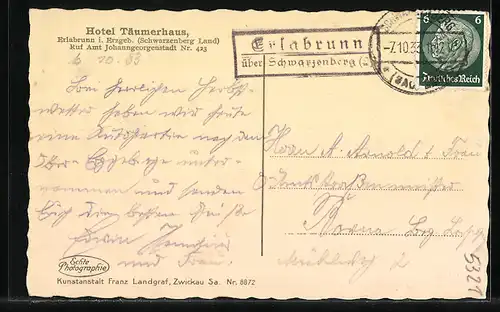 Hotel Täumerhaus,
Erlabrunn i. Erzgeb. (Schwarzenberg Land)
Ruf Amt Johanngeorgenstadt Nr. 423
6 10. 33
Bei herrlichem Herbst-
wetter haben wir heute
eine Autopartie nach dem
Ober Erzgebirge unter-
nommen und senden
Euch die besten Grüße
Erwin
und Frau.
Echte
Photographie
Kunstanstalt Franz Landgraf, Zwickau Sa. Nr. 8872
Erlabrunn
über Schwarzenberg
-7.10.33
6 6
Deutsches Reich
Herrn A. Arnold u. Frau
Borna Bez Leipzig
5321